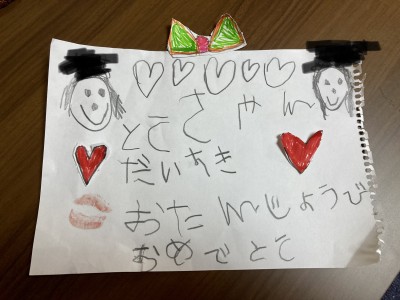 とこさくゃん
だいすき
おたんじょうび
おめでとう